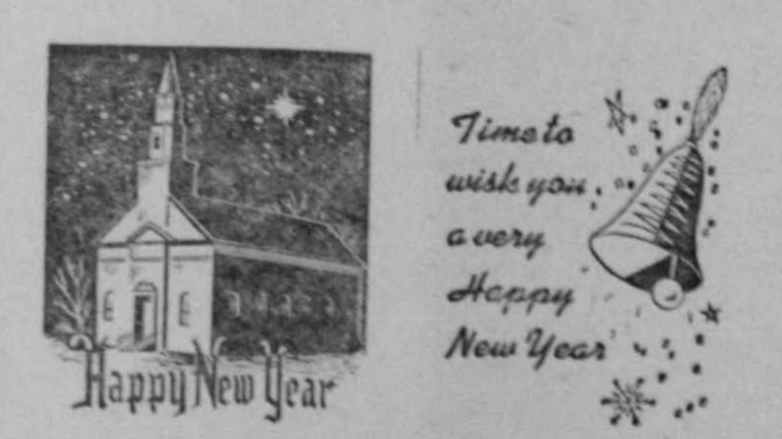 Happy New Year
Time to
wish you
a very
Happy
New Year